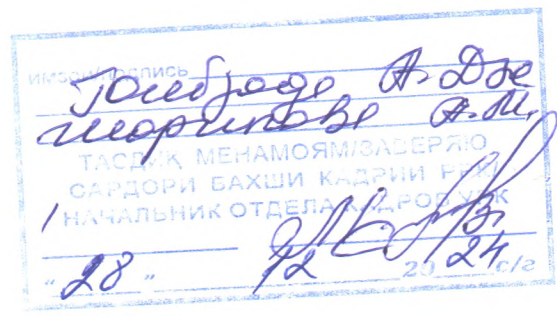 ИМЗОИ/ПОДПИСЬ
Толибзода А. Дж
Шарипова А.М.
ТАСДИҚ МЕНАМОЯМ/ЗАВЕРЯЮ
САРДОРИ БАХШИ КАДРИИ РКИ
НАЧАЛЬНИК ОТДЕЛА КАДРОВ УК
"28" 12 2024 с/г